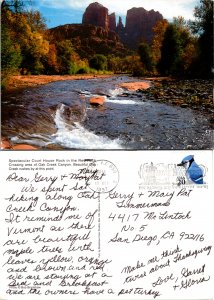 Spectacular Court House Rock in the Red Rock
Crossing area of Oak Creek Canyon. Beautiful Oak
Creek rushes by at this point.
Dear Gerry + Mary Pat
We spent Sat.
hiking along Oak
Creek Canyon.
It reminds me of
Vermont as there
are beautiful
maple trees with
leaves yellow, orange
and brown and red
We are staying at a
Bed and Breakfast
and the owners have a pet turkey.
Gerry + Mary Pat
4417
No 5
San Diego CA 92116
Make me think
twice about Thanksgiving
Love,
+ Gloria